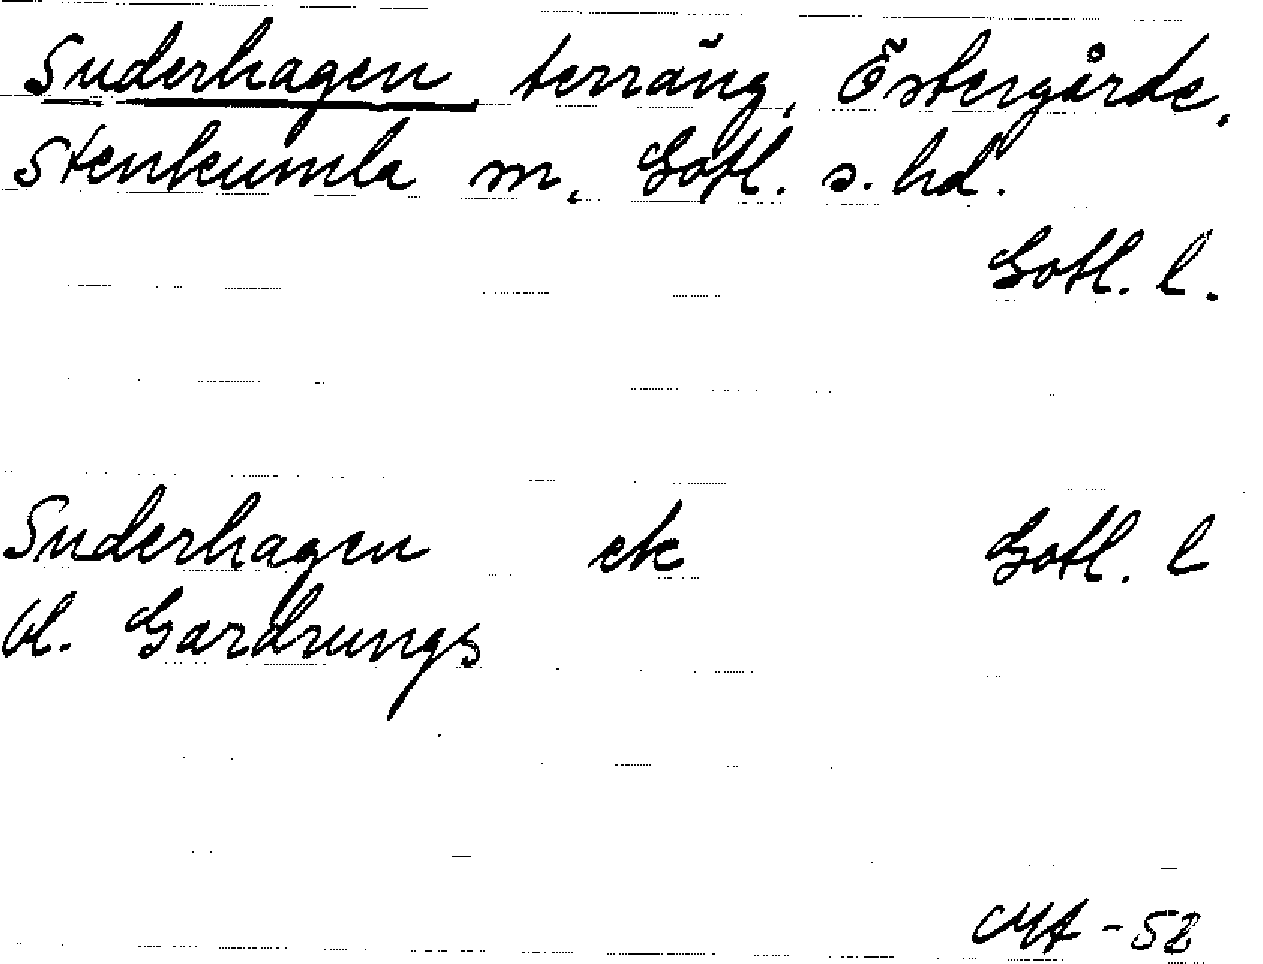 Suderhagen terräng, Östergårde,
Stenkumla sn, Gotl. s. hd.
Gotl. l.
Suderhagen ek Gotl. l
bl. Gardrungs
-52